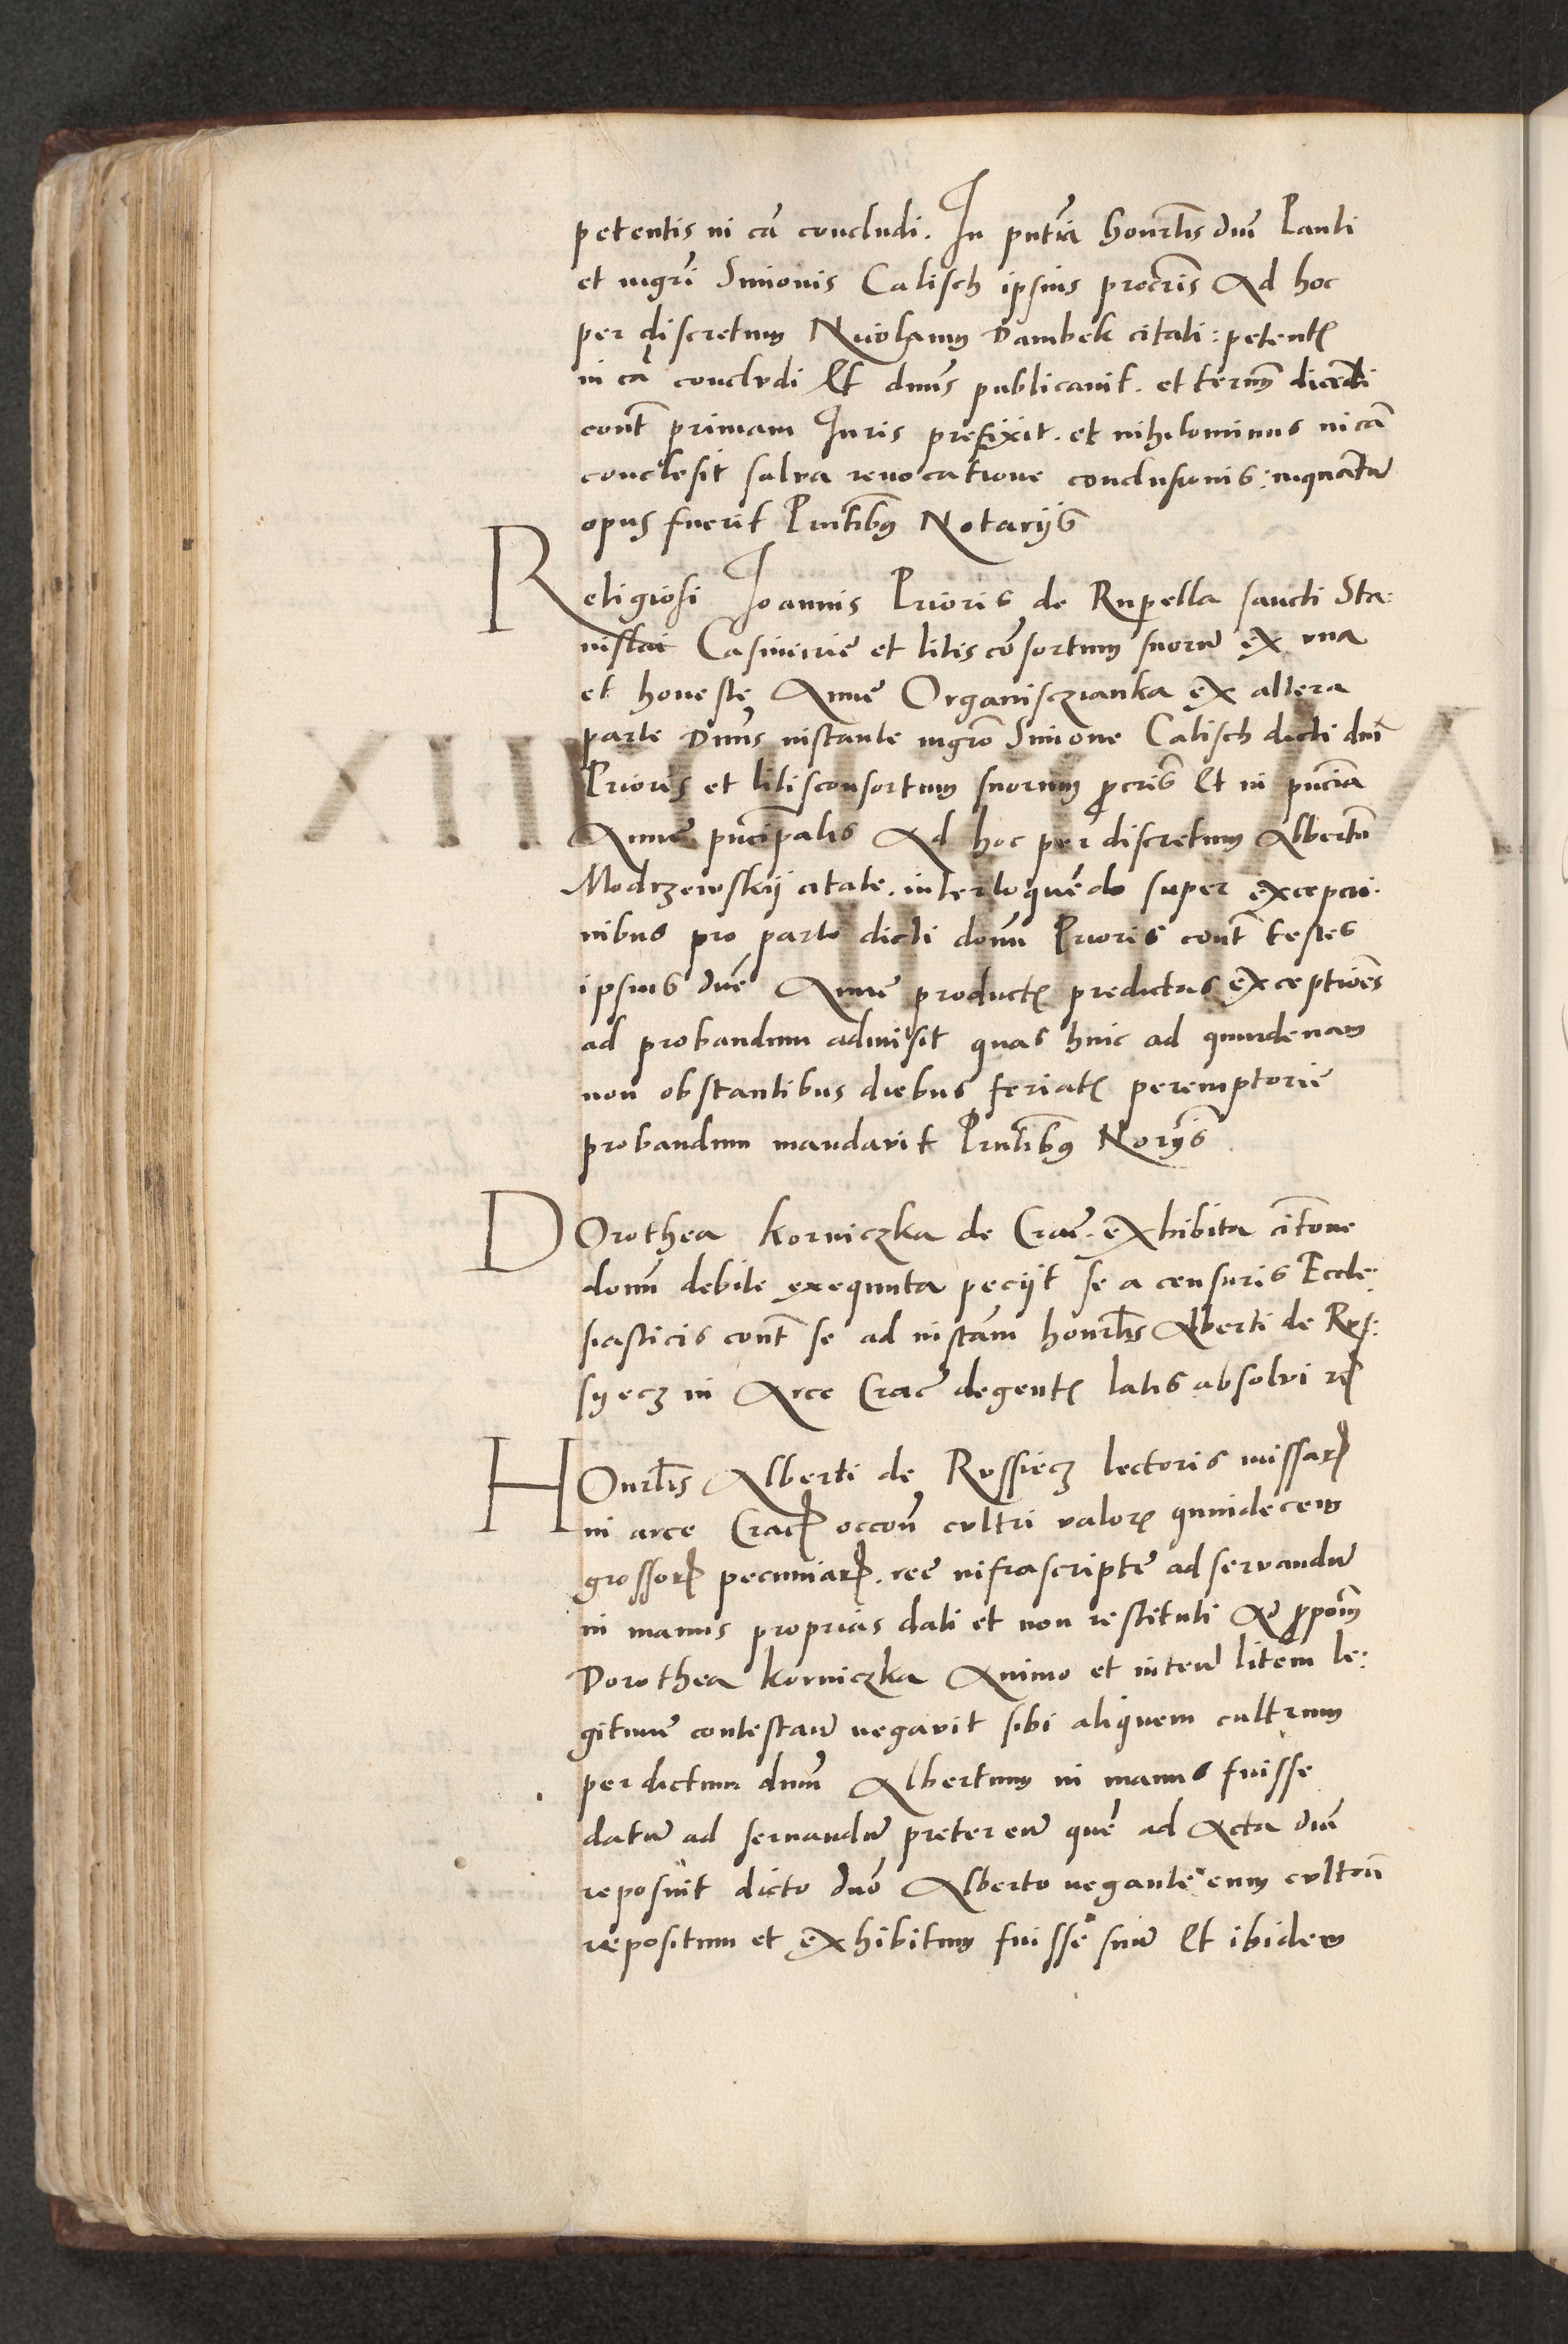 petentis in cã concludi. In pntiã honrabilis dnĩ Pauli
et mgrĩ Simonis Calisch ipsius procrĩs Ad hoc
per discretum Nicolaum Dambek citati: petentẽ
in cã conclvdi Et dnus publicavit. et termĩ dicendi
cont̃ primam Iuris prefixit. et nihilominus in cã
conclusit salva revocatione conclusionis: inquãtũ
opus fuerit Pntibus Notarijs
Religiosi Joannis Prioris de Rupella sancti Sta:
nislai Casimirie et litis cõsortum suorũ ex vna
et honeste Anne Organisczianka ex altera
parte Dnus instante mgrõ Simone Calisch dicti dnĩ
Prioris et litisconsortum suorum pcris Et in pnciã
Anne pncipalis Ad hoc per discretum Albertũ
Modrzewskij citate. interloquẽdo super excepcio:
nibus pro parte dicti domĩ Prioris cont̃ testes
ipsius dnẽ Anne productẽ predictas exceptiões
ad probandum admisit quas huic ad quindenam
non obstantibus diebus feriatẽ peremptorie
probandum mandavit Pntibus Norijs
DOrothea Korniczka de Crač. exhibita citõne
domĩ debite exequuta pecijt se a censuris Eccle:
siasticis cont̃ se ad instam̃ honrabilis Alberti de Rus:
syecz in Arce Crač degentẽ latis absolvi rẽ
HOnrabilis Alberti de Rvssiecz lectoris missarẽ
in arce Cracẽ occoñ cvltri valorẽ quindecem
grossorẽ pecuniarẽ. ree infrascripte ad servandũ
in manus proprias dati et non restituti Ad ppom̃
Dorothea Korniczka Animo et intenẽ litem le:
gitime contestanẽ negavit sibi aliquem cultrum
per dictum dnum̃ Albertum in manus fuisse
datũ ad servandũ preter eũ quẽ ad Acta dnĩ
reposuit dicto dnõ Alberto negante eum cvltrũ
repositum et exhibitum fuisse suũ Et ibidem
XIII